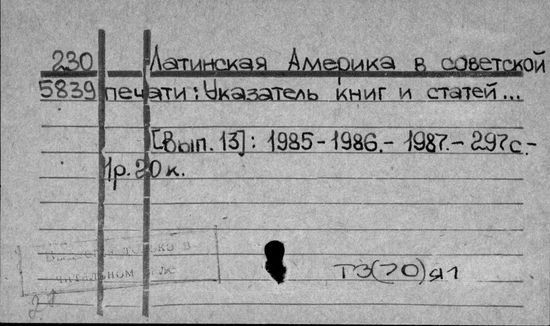 230 Латинская Америка в советской
5839 печати: Указатель книг и статей...
[Вып. 13]: 1985-1986.- 1987.- 297с.-
1р.20к.
только в
читальном зале
Т3(70)я1